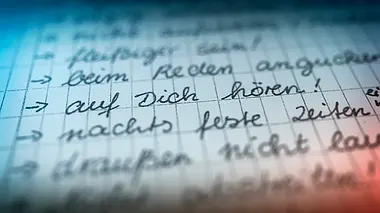 → fleißiger sein!
→ beim Reden angucken
→ auf Dich hören!
→ nachts feste Zeiten
→ draußen nicht